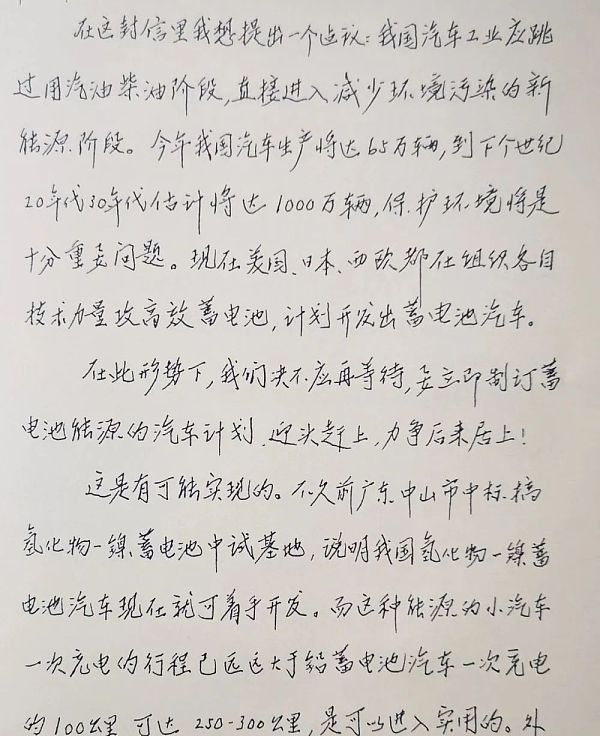 在这封信里我想提出一个建议：我国汽车工业应跳
过用汽油柴油阶段，直接进入减少环境污染的新
能源阶段。今年我国汽车生产将达65万辆，到下个世纪
20年代30年代估计将达1000万辆，保护环境将是
十分重要问题。现在美国、日本、西欧都在组织各自
技术力量攻高效蓄电池，计划开发出蓄电池汽车。
在此形势下，我们决不应再等待，要立即制订蓄
电池能源的汽车计划，迎头赶上，力争后来居上！
这是有可能实现的。不久前广东中山市中标搞
氢化物－镍蓄电池中试基地，说明我国氢化物－镍蓄
电池汽车现在就可着手开发。而这种能源的小汽车
一次充电的行程已远远大于铅蓄电池汽车一次充电
的100公里，可达250-300公里，是可以进入实用的。外